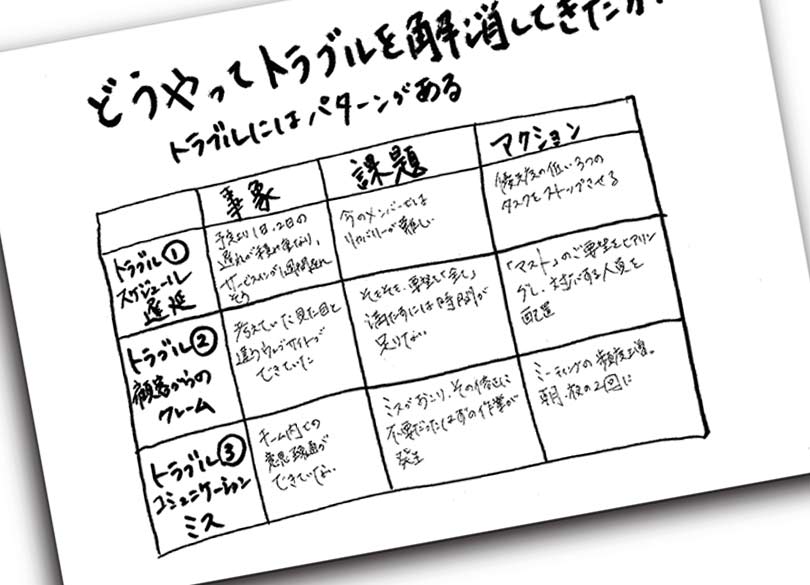 どうやってトラブルを解消してきたか?
トラブルにはパターンがある
事象
課題
アクション
トラブル①
スケジュール
遅延
予定より1日、2日の
遅れが積み重なり、
サービスインが1週間遅れ
そう
今のメンバーでは
リカバリーが難しい
優先度の低い3つの
タスクをストップさせる
トラブル②
顧客からの
クレーム
考えていた見た目と
違うウェブサイトが
できていた
そもそも、要望を「全て」
満たすには時間が
足りない
「マスト」のご要望をヒアリン
グし、対応する人員を
配置
トラブル③
コミュニケーション
ミス
チーム内での
意思疎通が
できていない
ミスがおこり、その修正に
不要だったはずの作業が
発生
ミーティングの頻度UP。
朝・夜の2回に